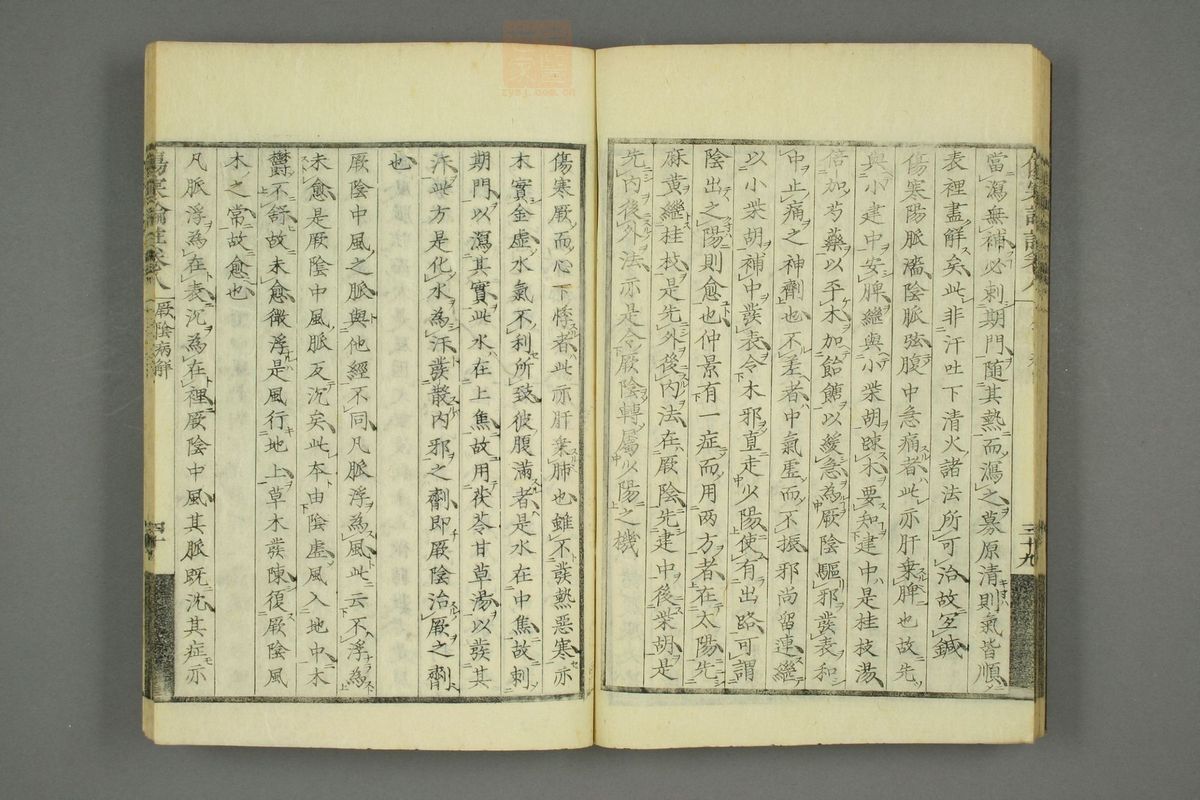 當瀉無補必刺期門隨其熱而瀉之募原清則氣皆順
表裡盡解矣此非汗吐下清火諸法所可治故至鍼
傷寒陽脈濇陰脈弦腹中急痛者此亦肝乗脾也故先
與小建中安脾繼與小柴胡踈木要知建中是桂枝湯
倍加芍藥以平木加飴餹以緩急為厥陰驅邪發表和
中止痛之神劑也不差者中氣虛而不振邪尚留連繼
以小柴胡補中發表令木邪直走少陽使有出路可謂
陰出之陽則愈也仲景有一症而用兩方者在太陽先
麻黄繼桂枝是先外後内法在厥陰先建中後柴胡是
先内後外法亦是令厥陰轉屬少陽之機
三十九
傷寒厥而心下悸者此亦肝乗肺也雖不發熱惡寒亦
木實金虛水氣不利所致彼腹滿者是水在中焦故刺
期門以瀉其實此水在上焦故用茯苓甘草湯以發其
汗此方是化水為汗發散内邪之劑即厥陰治厥之劑
也
厥陰中風之脈與他經不同凡脈浮為風此云不浮為
未愈是厥陰中風脈反沉矣此本由陰虛風入地中木
鬱不舒故未愈微浮是風行地上草木發陳復厥陰風
木之常故愈也
凡脈浮為在表沉為在裡厥陰中風其脈既沈其症亦
傷寒論註卷八
厥陰病解
四十
zysj.com.cn